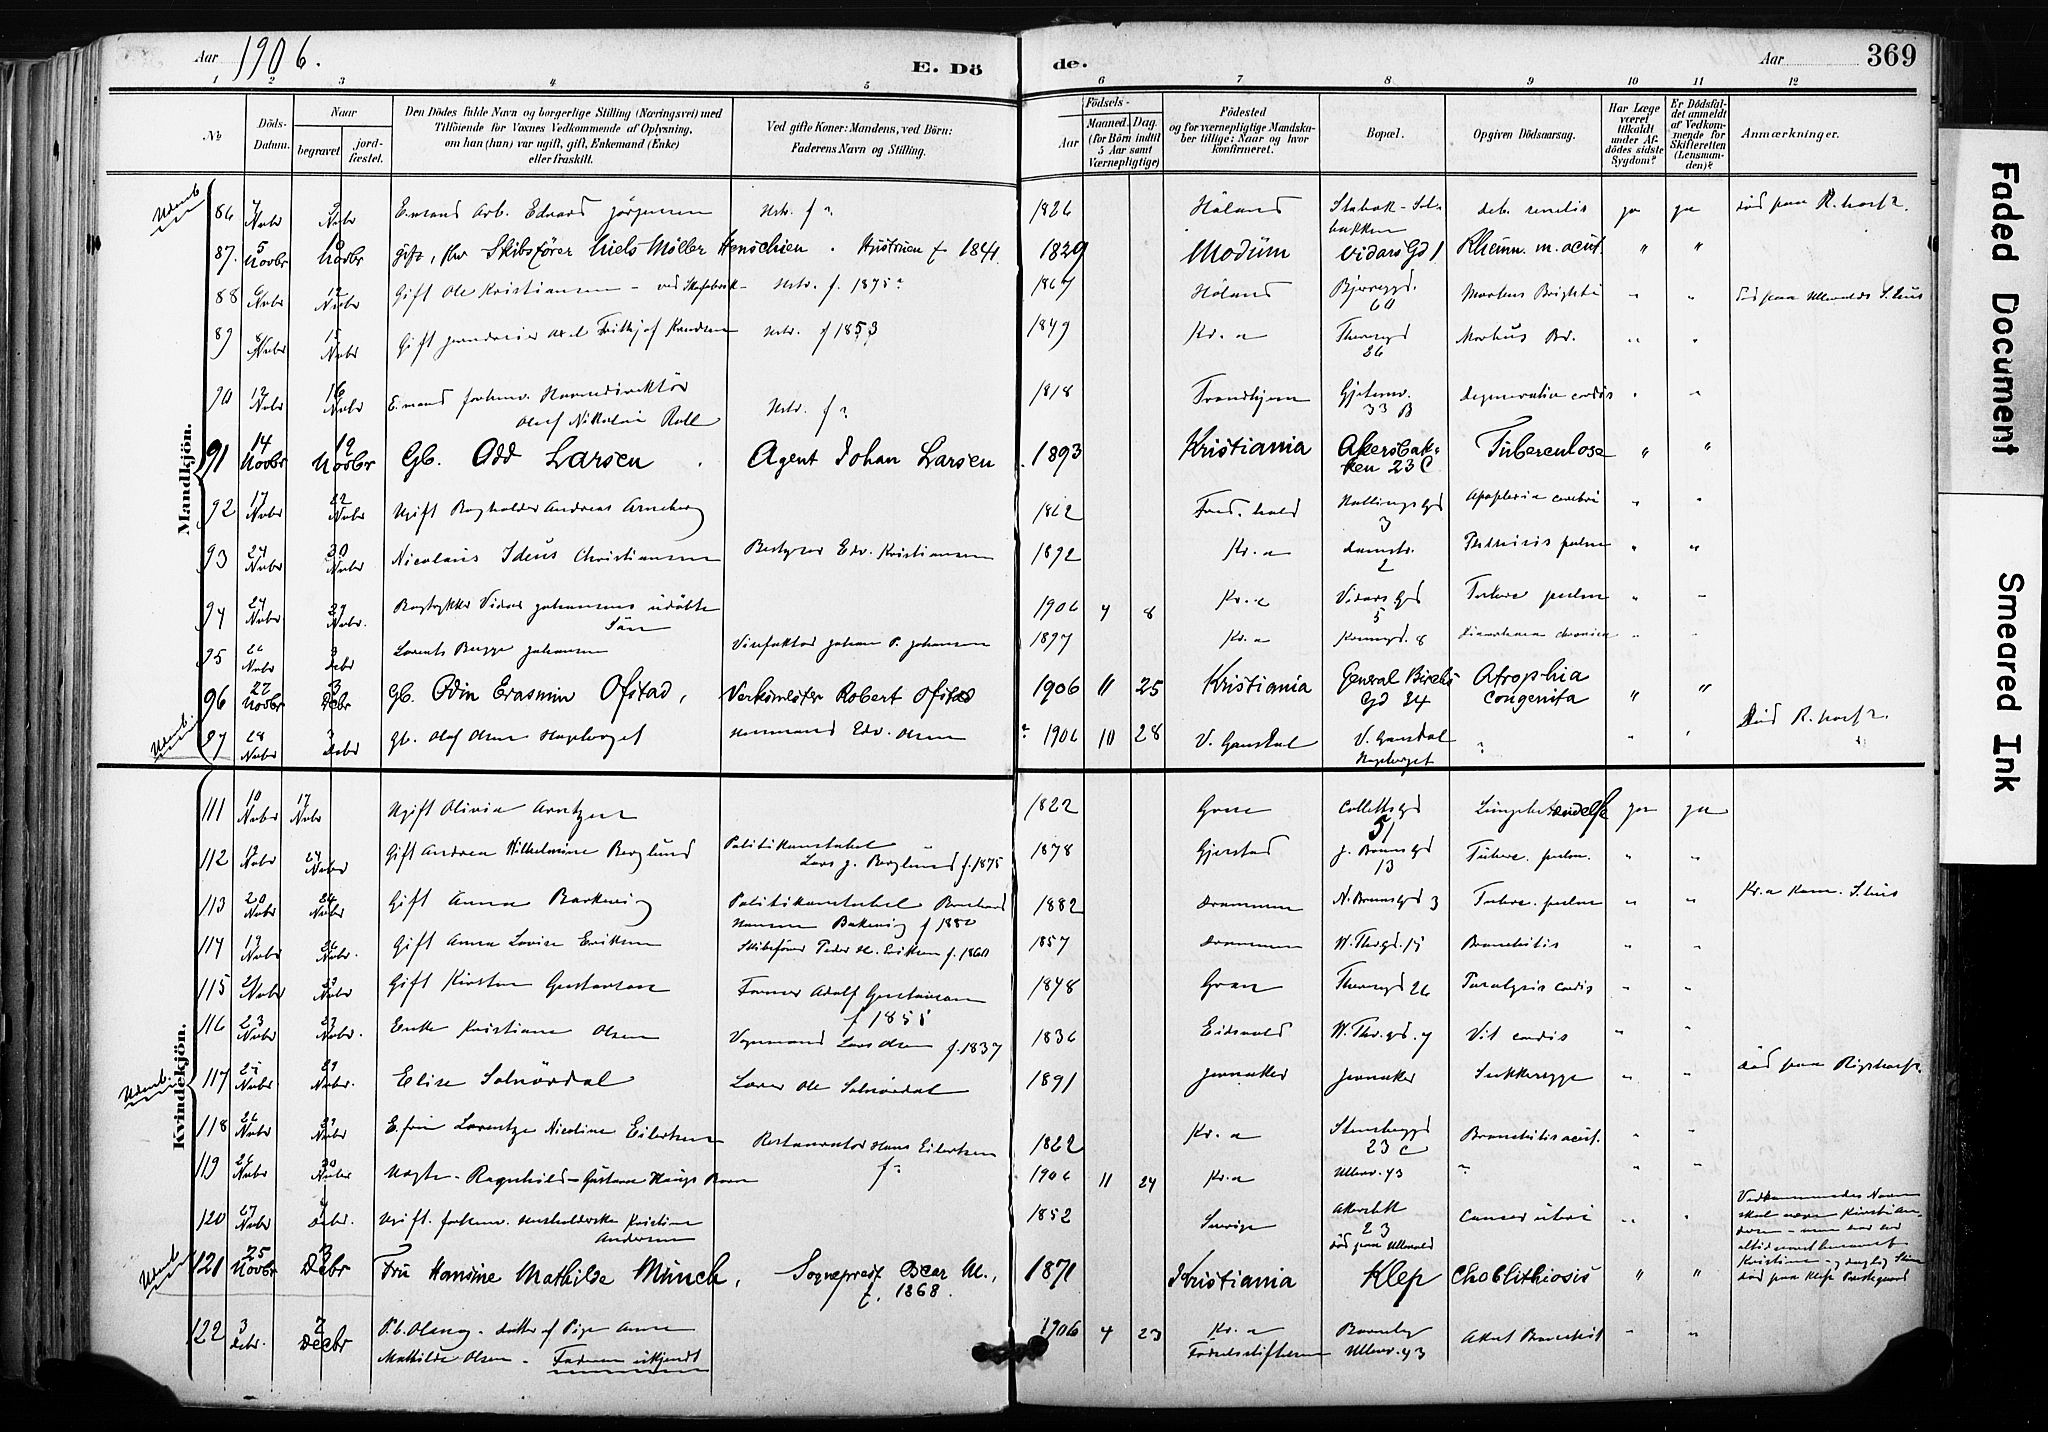 Aar 1906.
E. Dö
de.
Aar
369
1 2 3 4 5 6 7 8 9 10 11 12
№
Döds-Datum.
Naar
begravet
jord-fæstet.
Den Dödes fulde Navn og borgerlige Stilling (Næringsvei) med
Tilföiende for Voxnes Vedkommende af Oplysning,
om han (hun) var ugift, gift, Enkemand (Enke)
eller fraskilt.
Ved gifte Koner: Mandens, ved Börn:
Faderens Navn og Stilling.
Födsels-
Aar
Maaned. Dag.
(for Börn indtil
5 Aar samt
Værnepligtige)
Födested
og for værnepligtige Mandska-
ber tillige: Naar og hvor
konfirmeret.
Bopæl.
Opgiven Dödsaarsag.
Har Læge
været
tilkaldt
under Af-
dödes sidste
Sygdom?
Er Dödsfal-
det anmeldt
af Vedkom-
mende for
Skifteretten
(Lensman-
den)?
Anmærkninger.
Mandkjön.
Udenb. 86 7 Novbr 9 Novbr E.mand Arb. Edvard Jörgensen Hstr. f ? 1826 Höland Stabak - deb. senilis ja ja död paa R. hosp.
87. 5 Novbr Novbr gift, Skibsförer Niels Möller Henschien. Hustruen f 1841. 1829 Modum Vidars Gd 1 Rheum. m. acut. " "
88 Novbr 12 Novbr Gift Ole Kristiansen - Hstr. f. 1875? 1867 Höland Bjerregd. 60 Morbus Brightii " " död paa Ullevolds S.hus
89 Novbr 15 Novbr Gift Axel Frithjof Knudsen Hstr. f 1853 1849 Kr.a Thoresgd 26 Morbus Br. " "
90 12 Novbr 16 Novbr E.mand forhenv. Havnedirektör
Oluf Nikolai Roll Hstr. f ? 1818 Trondhjem Gjetemv. 33 B degeneratio cordis " "
91 14 Novbr 19 Novbr Gb. Odd Larsen. Agent Johan Larsen. 1893 Kristiania Akersbak-
ken 23 C Tuberculose " "
92 17 Novbr 22 Novbr Ugift Bogholder Andreas Arneberg 1862 Fred.hald Hallings Gd 3 Apoplexia cerebri " "
93 24 Novbr Novbr Nicolaus Ideus Christiansen Bestyrer Edv. Kristiansen 1892 Kr.a Damstr. 2 Phthisis pulm " "
94 24 Novbr 27 Novbr. Bogtrykker Vidar Johansens udöbte
Sön 1906 4 8 Kr.a Vidars Gd 5 Tuberc pulm " "
95 Novbr 3 Debr Lorents Bugge Johansen Vinfaktor Johan P. Johansen 1897 Kr.a 8 chronica " "
96 22 Novbr 3 Decbr Gb. Odin Erasmin Ofstad, Verksmester Robert Ofstad 1906 11 25 Kristiania General Birchs
Gd 24 Atrophia
congenita " "
Udenb. 97 28 Novbr 3 Debr Gb. Olaf Olsen Hageberget Edv. Olsen ? 1906 10 28 V. Gausdal V. Gausdal
Hageberget ? " " Död R. hosp.
Kvindekjön.
111 10 Novbr 17 Novbr Ugift Olivia Arntzen 1822 Gran Colletts Gd
51 Lungebetændelse ja ja
112 19 Novbr 24 Novbr Gift Andrea Vilhelmine Berglund Politikonstabel
Lars J. Berglund f. 1875 1878 Gjerstad J. Bruns Gd
13 Tuberc. pulm. " "
113 20 Novbr 24 Novbr Gift Anna Barkenig Politikonstabel Bernhard
Hansen Bakenig f 1880 1882 Drammen N. Bruns Gd 3 Tuberc. pulm " " Kr.a kom. S.hus
114 19 Novbr 26 Novbr. Gift Anna Lovise Eriksen Skibsförer Peder H. Eriksen f. 1860 1857 Drammen W. Thrgd. 15 Bronchitis " "
115 21 Novbr Novbr Gift Kirsten Gustavsen Former Adolf Gustavsen
f 1851 1848 Gran Thoresgd 26 Paralysis cordis " "
116 23 Novbr 27 Novbr. Enke Kristiane Olsen Vognmand Lars Olsen f. 1837 1836 Eidsvold W. Thr. gd. 7 Vit cordis " "
Udenb. 117 Novbr 29 Novbr. Elise Solnördal Lærer Ole Solnördal 1891 Jevnaker Jevnaker Sukkersyge " " död paa Rigshosp.
118 26 Novbr 29 Novbr E.fru Lorentze Nicoline Eilertsen Restauratör Hans Eilertsen
f ? 1822 Kr.a Stensberggd
23 C Bronchitis acut. " "
119 26 Novbr 30 Novbr Ragnhild - Gustava Haugs Barn 1906 11 24 Kr.a Ullev. 43 ? " "
120 27 Novbr 4 Debr. Ugift. forhenv. Husholderske Kristine
Andersen 1852 Sverige Akersbk
23
död paa Ullevold Cancer uteri " " Vedkommendes Navn
skal være Kirstian-
altid været benævnt
Kristine
Udenb. 121 25 Novbr 3 Decbr Fru Hansine Mathilde Münch, Sogneprest Oscar M.,
f. 1868. 1871 Kristiania Klep Cholelithiosis " " död paa Klep Prestegaard
122 3 Debr. 7 Decbr P.b. Olang - datter af Pige Anna
Mathilde Olsen - Faderen ukjendt 1906 4 23 Kr.a
Födselsstiftelsen
Ullevv. 43 Akut Bronchit " "
Faded Document
Smeared Ink